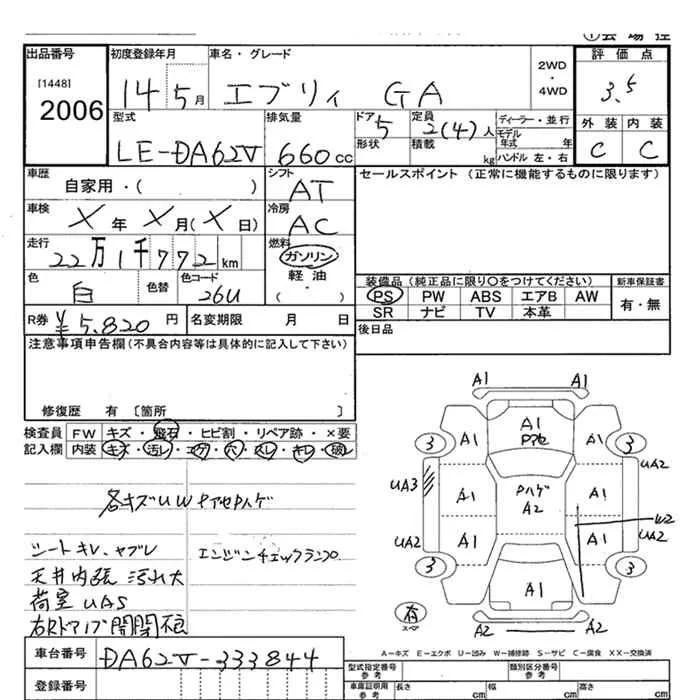 出品番号 初度登録年月 車名・グレード 2WD・4WD 評価点
[1448] 2006 14 5月 エブリィ GA 3.5
型式 排気量 ドア 定員 ディーラー・並行 外装 内装
LE-DA62V 660cc 5 2(4)人 モデル年式 年 C C
形状 積載 kg ハンドル 左・右
車歴 自家用・( ) シフト AT セールスポイント (正常に機能するものに限ります)
車検 X年 X月(X日) 冷房 AC
走行 22万1千772km 燃料 ガソリン 軽油・( )
色 白 色替 色コード 26U
装備品 (純正品に限り○をつけてください) 新車保証書
PS PW ABS エアB AW 有・無
SR ナビ TV 本革
R券 ¥5,820円 名変期限 月 日 後日品
注意事項申告欄 (不具合内容等は具体的に記入して下さい)
修復歴 有 〔箇所 〕
検査員記入欄 FW キズ・飛石・ヒビ割・リペア跡・×要
内装 キズ・汚レ・コゲ・穴・スレ・キレ・破レ
各キズUWヤアセPハゲ
シートキレ、ヤブレ エンジンチェックランプ
天井内張汚れ大
荷室UAS
A1 A1
A1 Pアセ
3 A1 A1 3
UA3 A1 Pハゲ A2 A1 UA2
W2
UA2 A1 A1 UA2
3 A1 3
有 スペア
A2 A2
A-キズ E-エクボ U-凹み W-補修跡 S-サビ C-腐食 XX-交換済
車台番号 DA62V-333844
登録番号
型式指定番号 参考 類別区分番号 参考
車庫証明用 参考 長さ cm 幅 cm 高さ cm